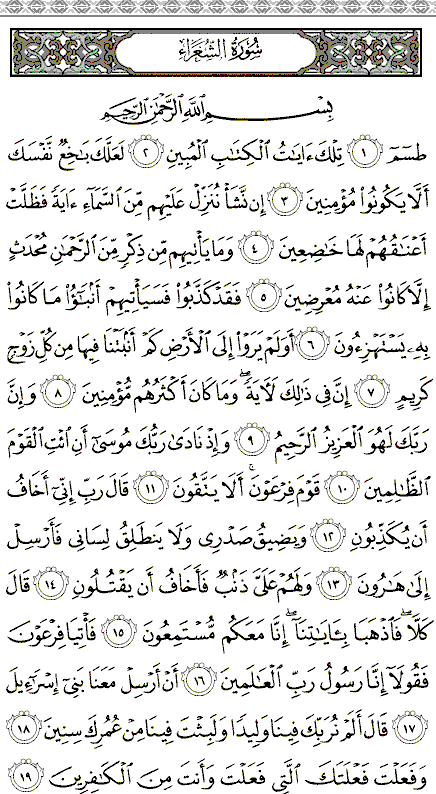 سُورَةُ الشُّعَرَاءِ
بِسْمِ ٱللَّهِ ٱلرَّحْمَٰنِ ٱلرَّحِيمِ
طسٓمٓ ١ تِلْكَ ءَايَٰتُ ٱلْكِتَٰبِ ٱلْمُبِينِ ٢ لَعَلَّكَ بَٰخِعٌ نَّفْسَكَ
أَلَّا يَكُونُوا۟ مُؤْمِنِينَ ٣ إِن نَّشَأْ نُنَزِّلْ عَلَيْهِم مِّنَ ٱلسَّمَآءِ ءَايَةً فَظَلَّتْ
أَعْنَٰقُهُمْ لَهَا خَٰضِعِينَ ٤ وَمَا يَأْتِيهِم مِّن ذِكْرٍ مِّنَ ٱلرَّحْمَٰنِ مُحْدَثٍ
إِلَّا كَانُوا۟ عَنْهُ مُعْرِضِينَ ٥ فَقَدْ كَذَّبُوا۟ فَسَيَأْتِيهِمْ أَنۢبَٰٓؤُا۟ مَا كَانُوا۟
بِهِۦ يَسْتَهْزِءُونَ ٦ أَوَلَمْ يَرَوْا۟ إِلَى ٱلْأَرْضِ كَمْ أَنۢبَتْنَا فِيهَا مِن كُلِّ زَوْجٍ
كَرِيمٍ ٧ إِنَّ فِى ذَٰلِكَ لَءَايَةً ۖ وَمَا كَانَ أَكْثَرُهُم مُّؤْمِنِينَ ٨ وَإِنَّ
رَبَّكَ لَهُوَ ٱلْعَزِيزُ ٱلرَّحِيمُ ٩ وَإِذْ نَادَىٰ رَبُّكَ مُوسَىٰٓ أَنِ ٱئْتِ ٱلْقَوْمَ
ٱلظَّٰلِمِينَ ١٠ قَوْمَ فِرْعَوْنَ ۚ أَلَا يَتَّقُونَ ١١ قَالَ رَبِّ إِنِّىٓ أَخَافُ
أَن يُكَذِّبُونِ ١٢ وَيَضِيقُ صَدْرِى وَلَا يَنطَلِقُ لِسَانِى فَأَرْسِلْ
إِلَىٰ هَٰرُونَ ١٣ وَلَهُمْ عَلَىَّ ذَنۢبٌ فَأَخَافُ أَن يَقْتُلُونِ ١٤ قَالَ
كَلَّا ۖ فَٱذْهَبَا بِـَٔايَٰتِنَآ ۖ إِنَّا مَعَكُم مُّسْتَمِعُونَ ١٥ فَأْتِيَا فِرْعَوْنَ
فَقُولَآ إِنَّا رَسُولُ رَبِّ ٱلْعَٰلَمِينَ ١٦ أَنْ أَرْسِلْ مَعَنَا بَنِىٓ إِسْرَٰٓءِيلَ
١٧ قَالَ أَلَمْ نُرَبِّكَ فِينَا وَلِيدًا وَلَبِثْتَ فِينَا مِنْ عُمُرِكَ سِنِينَ ١٨
وَفَعَلْتَ فَعْلَتَكَ ٱلَّتِى فَعَلْتَ وَأَنتَ مِنَ ٱلْكَٰفِرِينَ ١٩